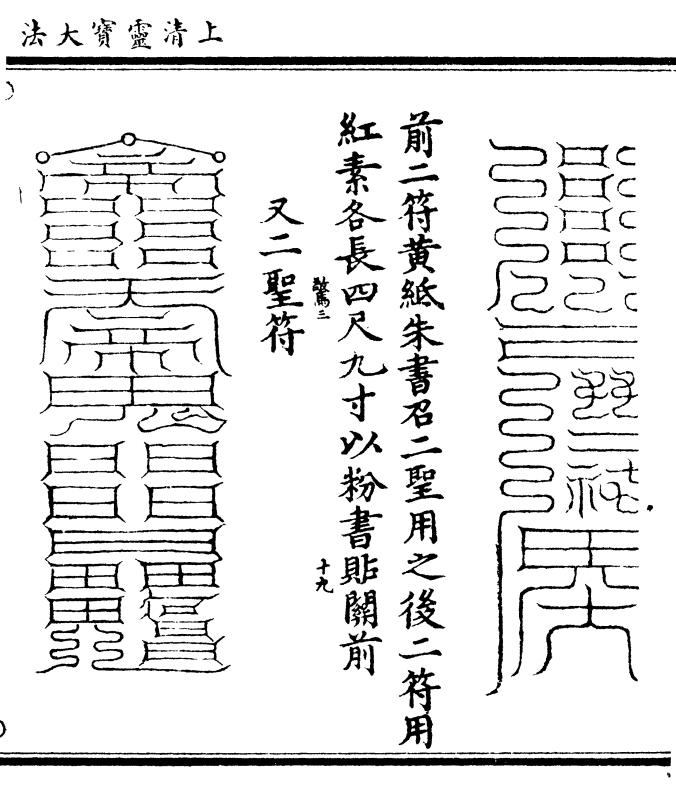 上清靈寶大法
前二符黄紙朱書召二聖用之後二符用
紅素各長四尺九寸以粉書貼關前
驚三
十九
又二聖符